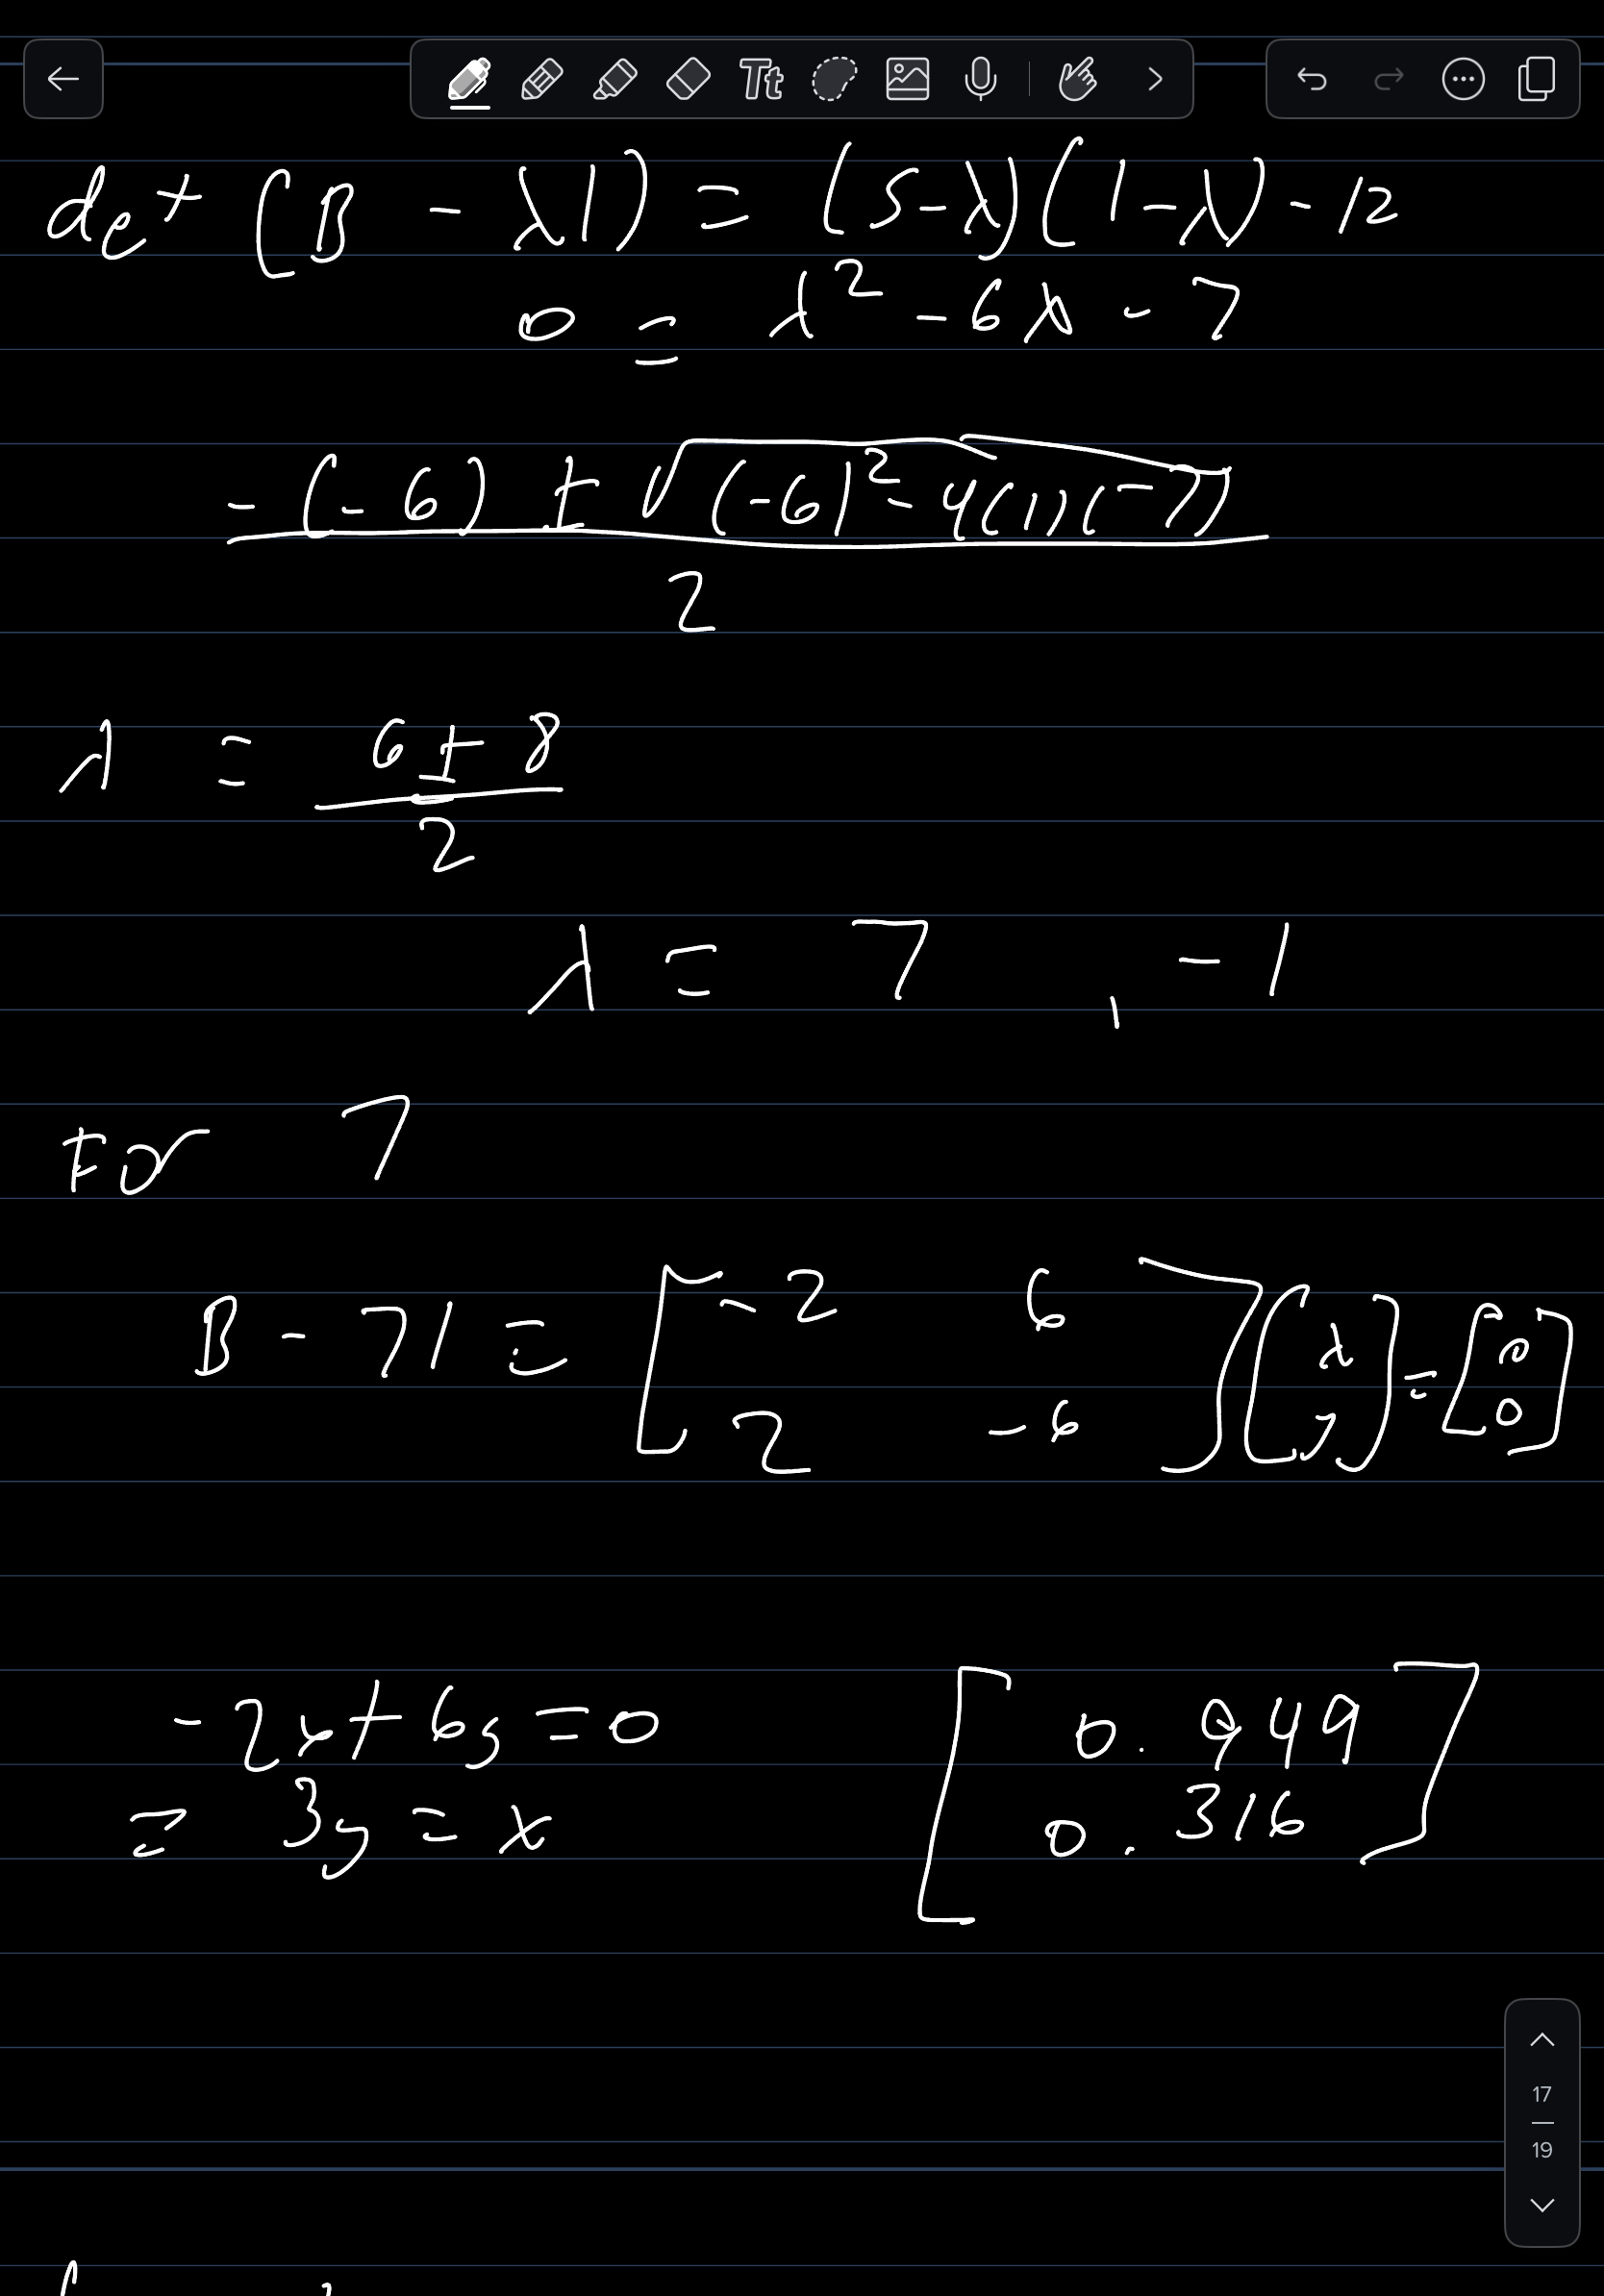 Tt
det (B - λI) = (5-λ)(1-λ) - 12
0 = λ² - 6λ - 7
-(-6) ± √(-6)² - 4(1)(-7)
2
λ = 6 ± 8
2
λ = 7 , -1
For 7
B - 7I = [-2 6
2 -6] [x
y] = [0
0]
-2x + 6y = 0
= 3y = x
[0.949
0.316]
17
19